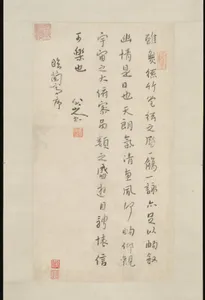 雖無絲竹管弦之盛一觴一詠亦足以暢敘
幽情是日也天朗氣清惠風和暢仰觀
宇宙之大俯察品類之盛遊目騁懷信
可樂也
臨蘭亭序